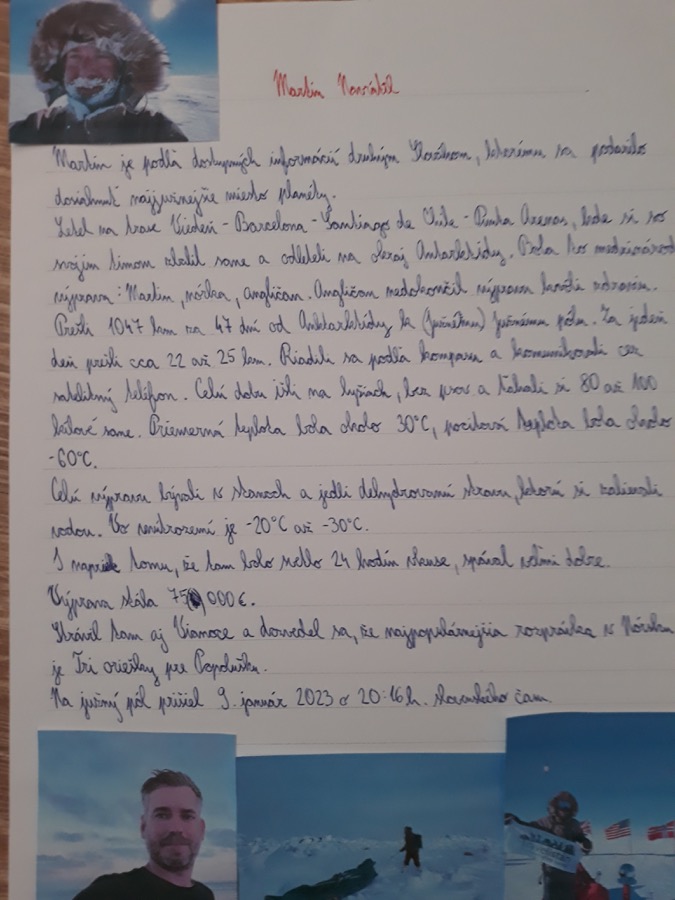 Martin Navrátil
Martin je podľa dostupných informácií druhým Slovákom, ktorému sa podarilo
dosiahnuť najjužnejšie miesto planéty.
Letel na trase Viedeň - Barcelona - Santiago de Chile - Punta Arenas, kde si so
svojim tímom zbalil sane a odleteli na okraj Antarktídy. Bola to medzinárod
výprava: Martin, nórka, angličan. Angličan nedokončil výpravu kvôli zdraviu.
Prešli 1047 km za 47 dní od Antarktídy k (južnému) južnému pólu. Za jeden
deň prešli cca 22 až 25 km. Riadili sa podľa kompasu a komunikovali cez
satelitný telefón. Celú dobu išli na lyžiach, bez psov a ťahali si 80 až 100
kilové sane. Priemerná teplota bola okolo 30°C, pocitová teplota bola okolo
-60°C.
Celú výpravu bývali v stanoch a jedli dehydrovanú stravu, ktorú si zalievali
vodou. Vo vnútrozemí je -20°C až -30°C.
I napriek tomu, že tam bolo svetlo 24 hodín vkuse, spával veľmi dobre.
Výprava stála 75 000 €.
Strávil tam aj Vianoce a dozvedel sa, že najpopulárnejšia rozprávka v Nórsku
je Tri oriešky pre Popolušku.
Na južný pól prišiel 9. január 2023 o 20:16 h. slovenského času.